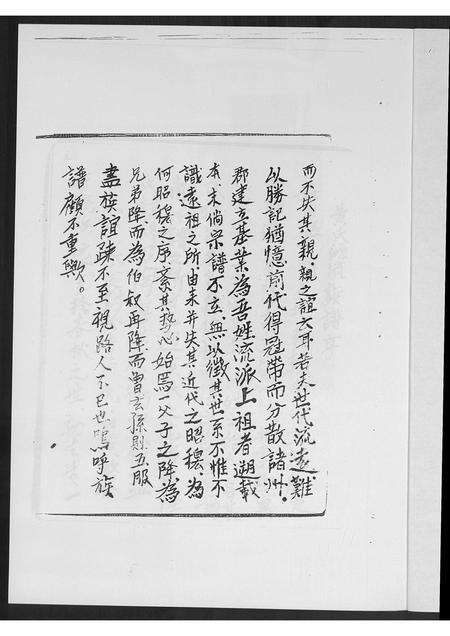 而不失其親親之誼大耳若夫世代流遠難
以勝記猶憶前代得冠帶而分散諸州
郡建立基業為吾姓流派上祖者溯載
本末倘宗譜不立無以徵其世系不惟不
識遠祖之所由来并失其近代之昭穆為
何昭穆之序紊其勢必始焉一父子之降為
兄弟降而為伯叔再降而曾玄孫則五服
盡族誼疎不至視路人不已也嗚呼族
譜顧不重歟。